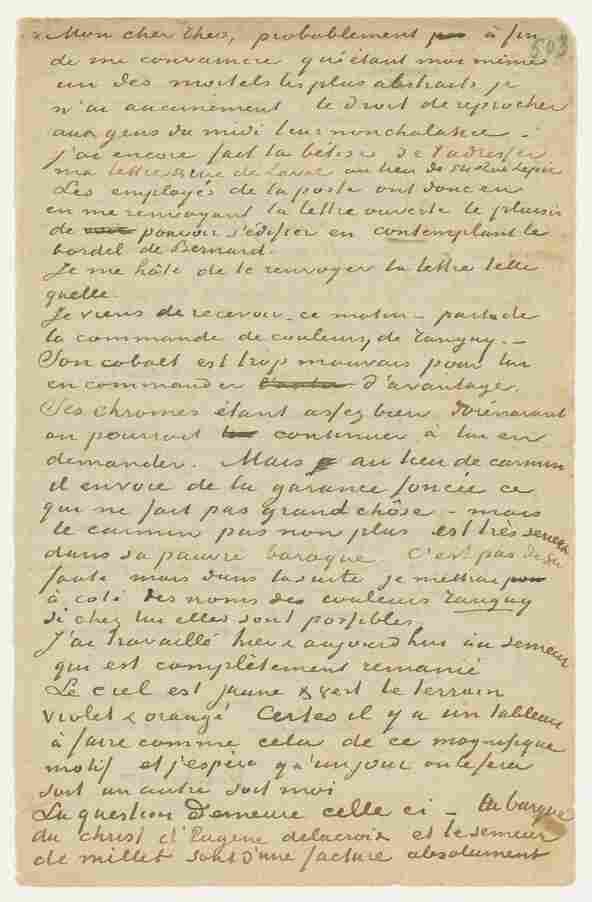 Mon cher Theo, probablement à fin
503
de me convaincre qu'étant moi-même
un des mortels les plus abstraits je
n'ai aucunement le droit de reprocher
aux gens du midi leur nonchalance –
j'ai encore fait la bêtise de t'adresser
ma lettre rue de Laval au lieu de rue Lepic
Les employés de la poste ont donc eu
en me renvoyant la lettre ouverte le plaisir
de pouvoir s'édifier en contemplant le
bordel de Bernard.
Je me hâte de te renvoyer la lettre telle
quelle.
Je viens de recevoir ce matin – partie de
la commande de couleurs, de Tanguy. –
Son cobalt est trop mauvais pour lui
en commander d'avantage.
Ses chromes étant assez bien dorénavant
on pourrait continuer à lui en
demander. Mais au lieu de carmin
il envoie de la garance foncée ce
qui ne fait pas grand chôse – mais
le carmin pas non plus est très
dans sa pauvre baraque C'est pas de sa
faute mais dans la suite je mettrai
à coté des noms des couleurs Tanguy
si chez lui elles sont possibles.
J'ai travaillé hier & aujourd'hui au semeur
qui est complètement remanié
Le ciel est jaune & vert le terrain
violet & orangé Certes il y a un tableau
à faire comme cela de ce magnifique
motif et j'espère qu'un jour on le fera
soit un autre soit moi
La question demeure celle ci – La barque
du christ d'Eugène delacroix et le semeur
de millet sont d'une facture absolument